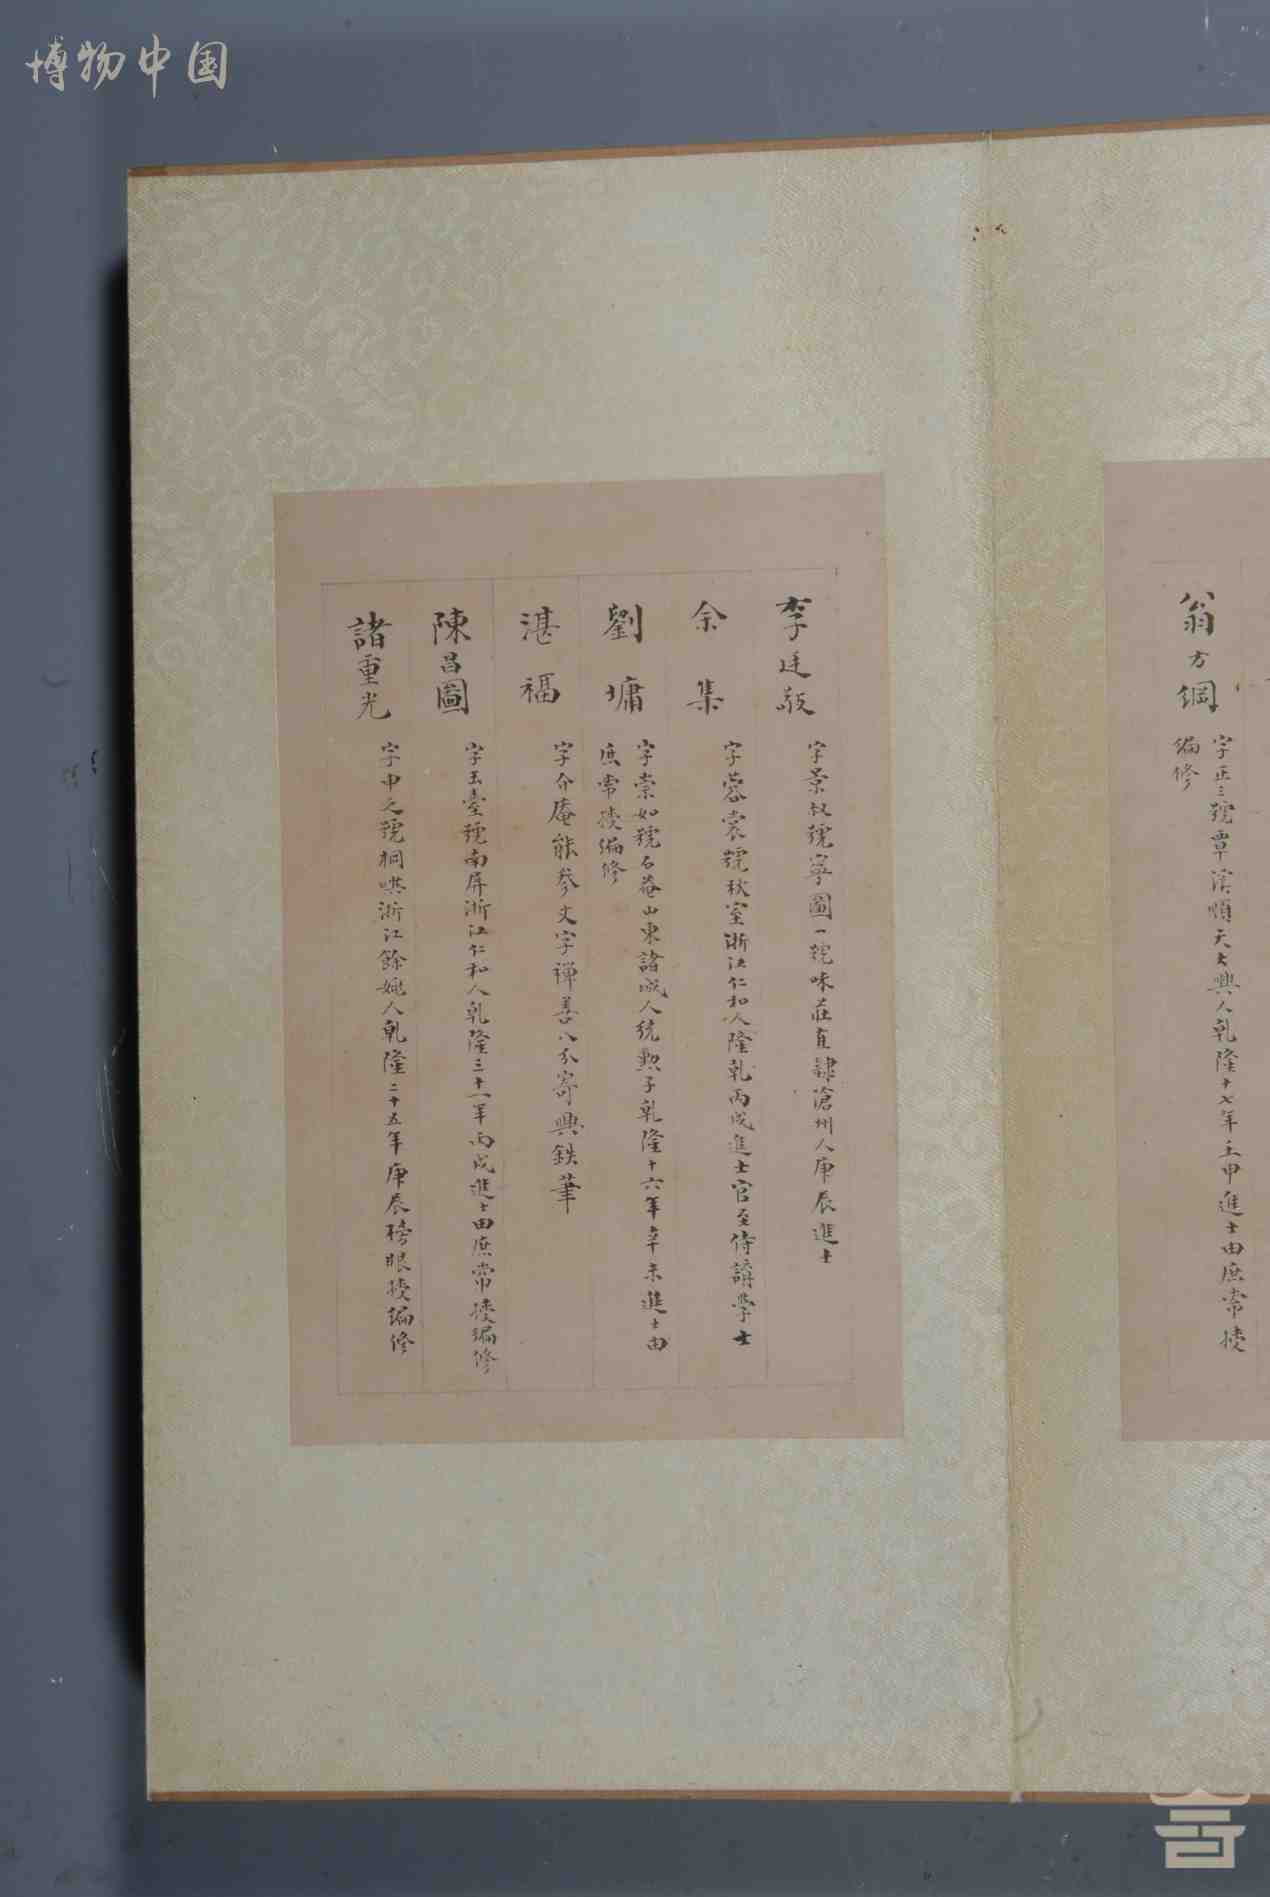 博物中国
翁方綱
字正三號覃溪順天大興人乾隆十七年壬申進士由庶常授
編修
李廷敬
字景叔號寧圃一號味莊直隸滄州人庚辰進士
余集
字蓉裳號秋室浙江仁和人隆乾丙戌進士官至侍講學士
劉墉
字崇如號石菴山東諸城人統勲子乾隆十六年辛未進士由
庶常授編修
湛福
字介庵能參文字禪善八分寄興鉄筆
陳昌圖
字玉臺號南屏浙江仁和人乾隆三十一年丙戌進士由庶常授編修
諸重光
字申之號桐嶼浙江餘姚人乾隆二十五年庚辰榜眼授編修